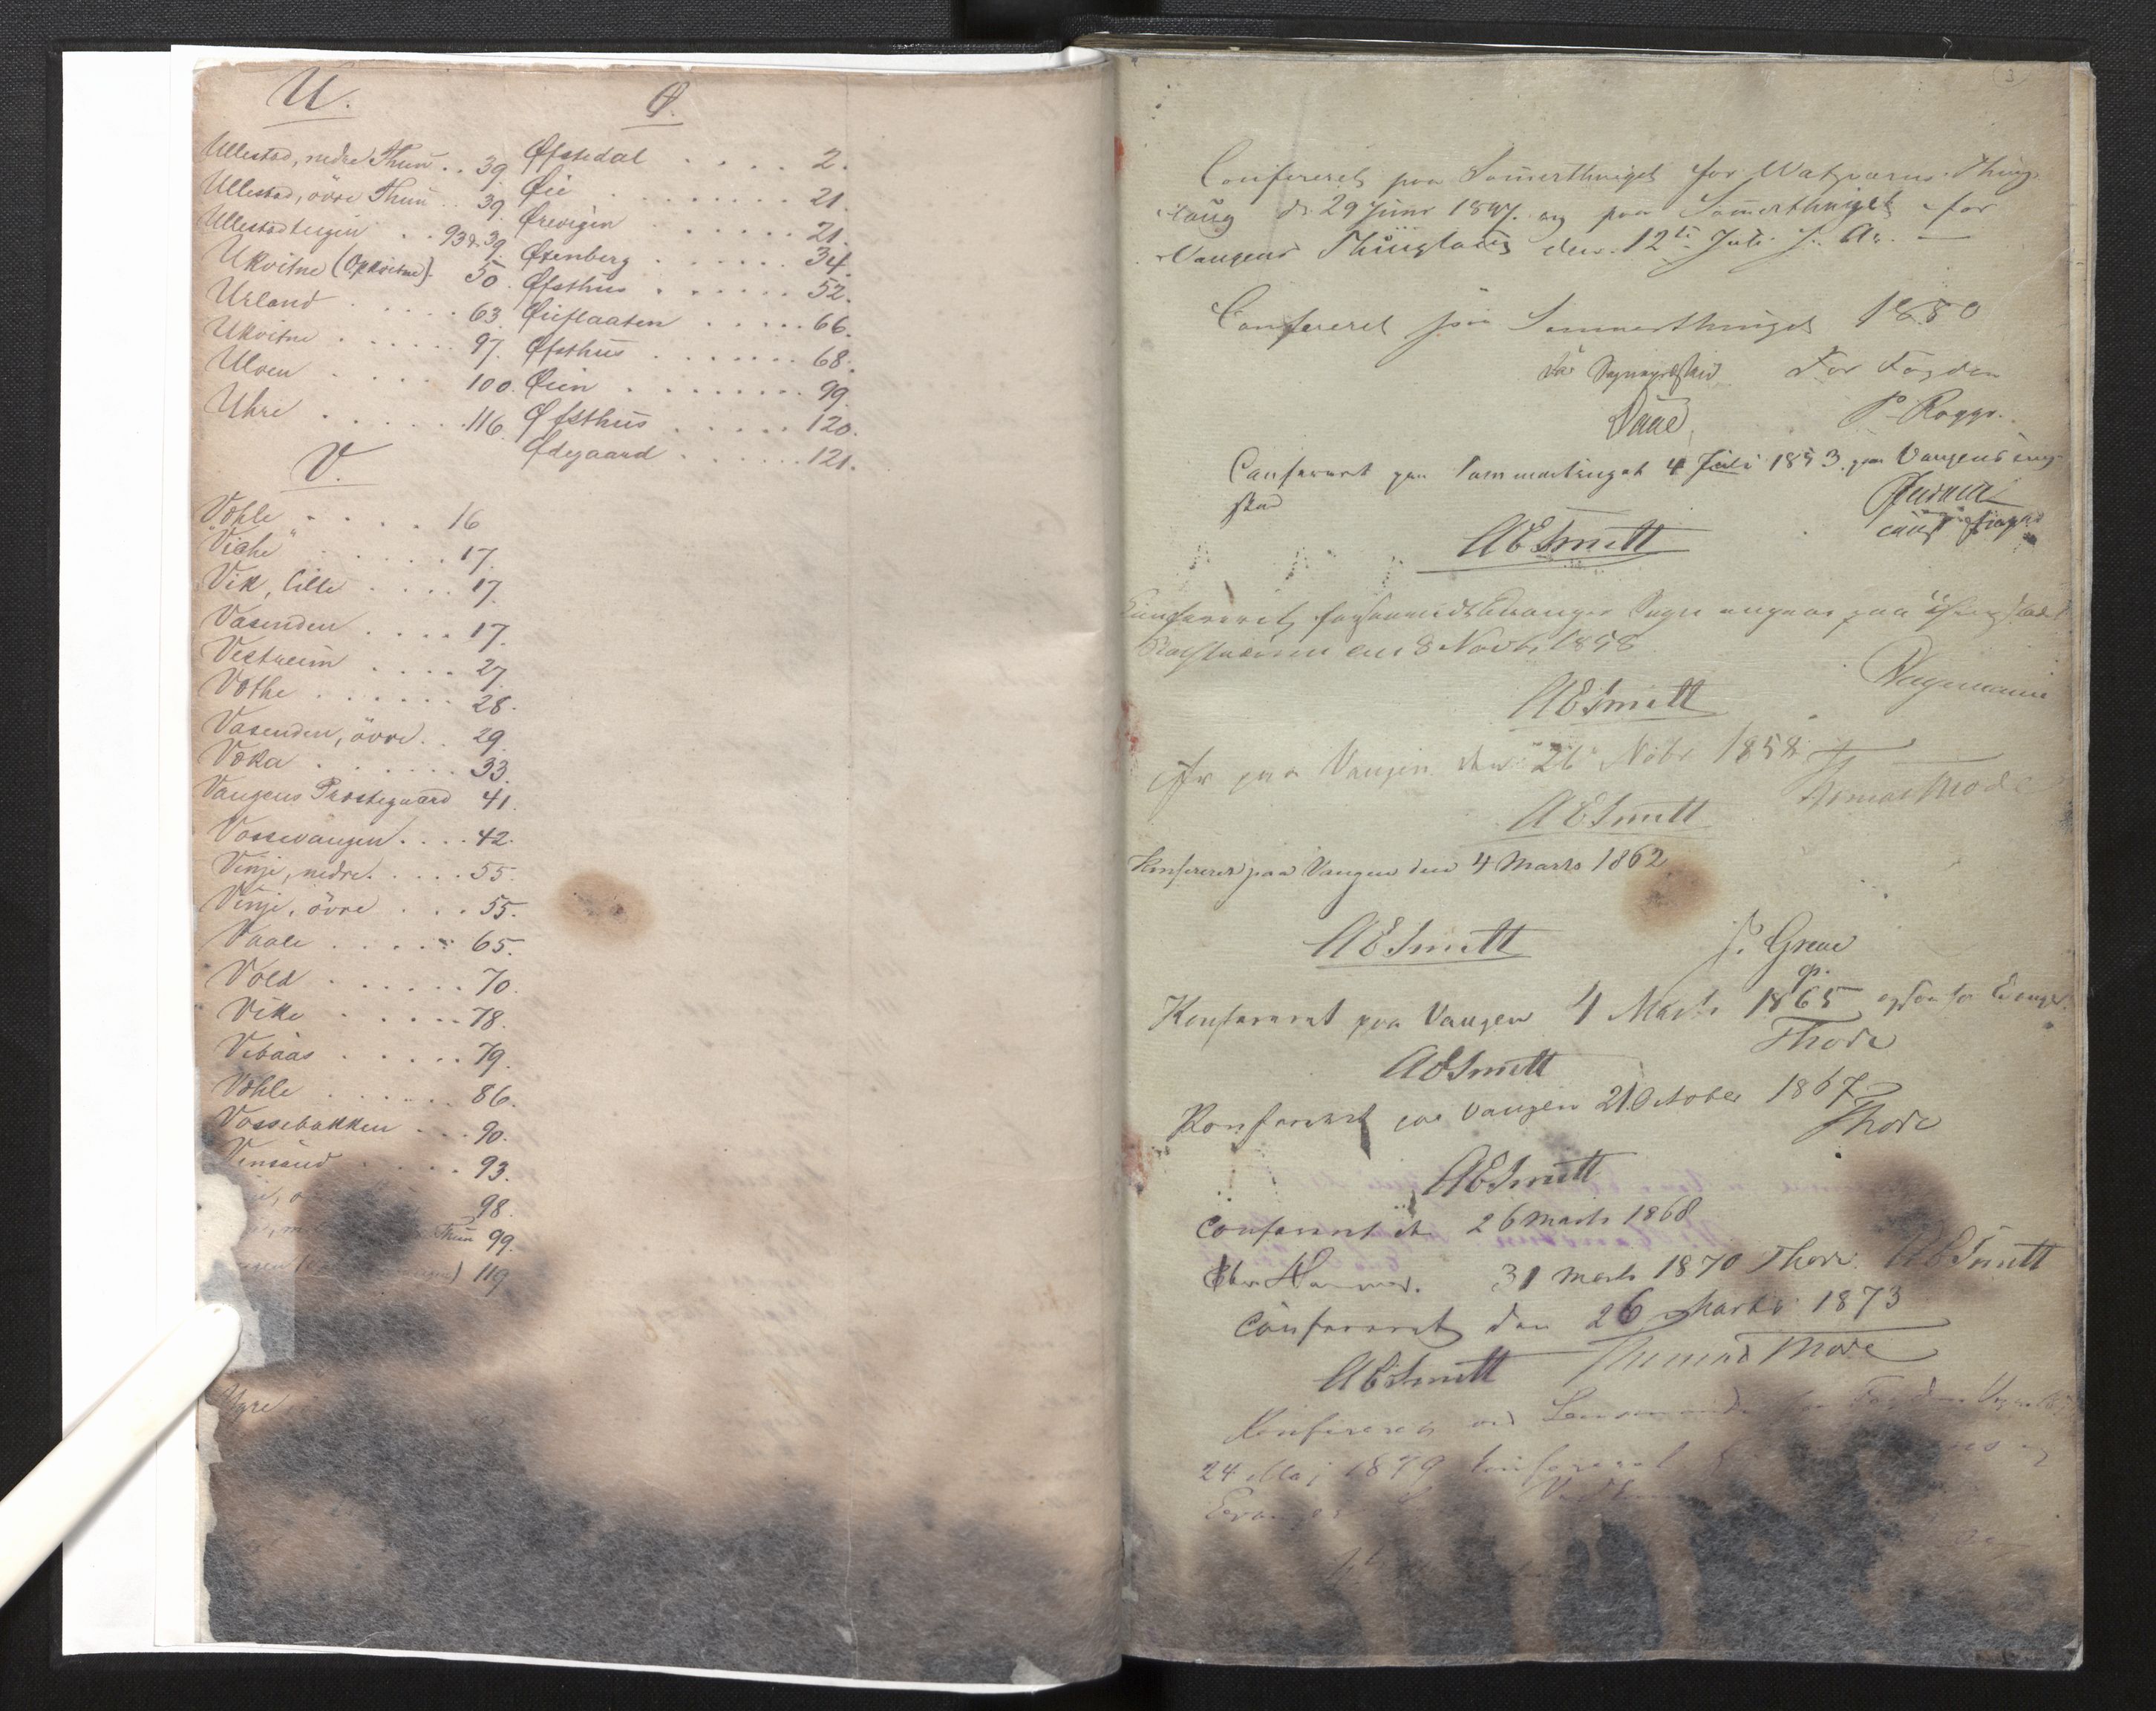 U.
Ullestad, nedre Thun . . 39.
Ullestad, övre Thun . . 39.
Ullestadteigen . . 93 & 39.
Ukvitne (Opkvitne) 50.
Urland . . . . 63.
Ukvitne . . . . . . 97.
Uloen . . . . 100.
Uhre . . . . . . 116.
V.
Væhle . . . . . 16
"Viche" . . . . . 17.
Vik, lille . . . . 17.
Vasenden . . . . 17.
Vestreim . . . . 27.
Væthe . . . . . . 28.
Vasenden, övre . . 29.
Væka . . . . . . 33.
Vangens Præstegaard 41.
Vossevangen . . . . 42.
Vinje, nedre . . . . . 55.
Vinje, övre . . . 55.
Vaale . . . . . 65.
Vold . . . . . . 70.
Vike . . . . . 78.
Vibaas . . . . . 79.
Væhle . . . . . . 86.
Vossebakken . . . 90.
Vinsand . . . . . 93.
98.
Thun 99.
119
Ø.
Øfstedal . . . . 2.
Øie . . . . . . . . 21.
Ørevigen . . . . . . 21.
Østenberg . . . . . . 34.
Øfsthus . . . . . . 52.
Øieflaaten . . . . . 66.
Øfsthus . . . . . . . 68.
Øien . . . . . . . . 99.
Øfsthus . . . . . . 120.
Ødegaard . . . . . . 121.
3
Confereret paa Sommerthinget for Thing-
laug d. 29 Juni 1847. og paa Sommerthinget for
Vangens Thinglaug den 12te Juli s. A. —
Confereret paa Sommerthinget 1850
For Fogden
Daae
Confereret paa Sommertinget 4 Juli 1853. paa Vangens ting-
sted
AESmitt
Confereret forsaavidt Evanger Sogn angaar paa
den 8 Novbr 1858
AESmitt
Wegemann
Do paa Vangen den 26 Nobr 1858
AESmitt
Thode
Konfereret paa Vangen den 4 Marts 1862
AESmitt
J. Greve
Konfereret paa Vangen 4 Marts 1865 ogsaa for Evanger
Thode
AESmitt
Konfereret paa Vangen 21 October 1867
Thode
AESmitt
Confereret d. 26 Marts 1868
31 Marts 1870 Thode. AESmitt
Confereret den 26 Marts 1873
AESmitt Thode
Konfereret ved
24 Maj 1879 konfereret